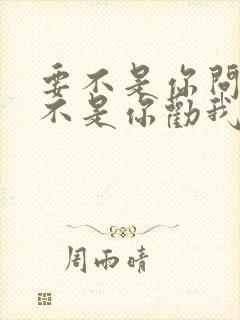 要不是你問
不是你勸我
周雨晴